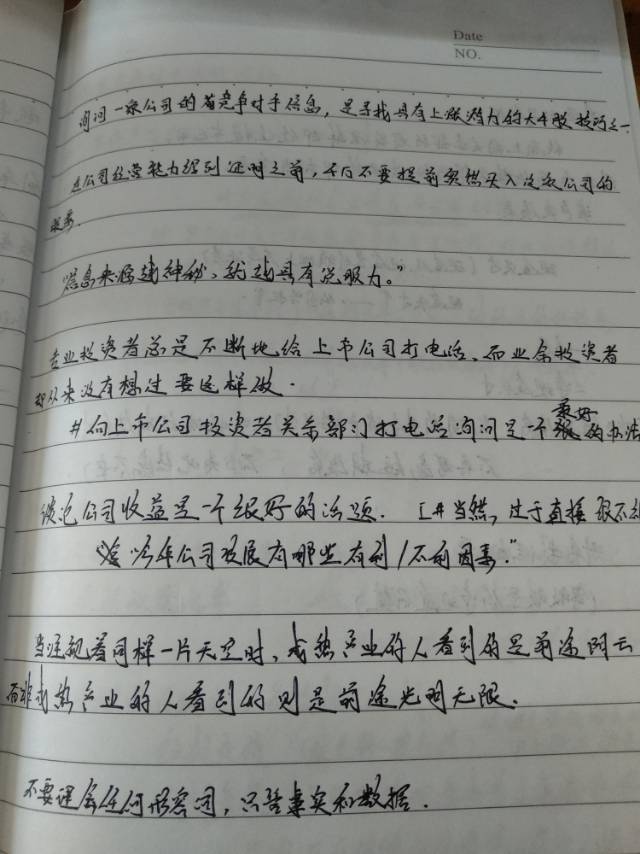 Date
NO.
询问一家公司的省竞争对手信息，是寻找具有上涨潜力的大牛股技巧之一
在公司经营能力得到证明之前，千万不要提前贸然买入这家公司的
股票.
“信息来源越神秘、就越具有说服力。”
专业投资者总是不断地给上市公司打电话、而业余投资者
却从来没有想过要这样做.
#向上市公司投资者关系部门打电话询问是一个最好的办法
谈论公司收益是一个很好的话题. [#当然, 过于直接
今年公司发展有哪些有利/不利因素."
当注视着同样一片天空时, 成熟产业的人看到的是前途阴云
而非成熟产业的人看到的则是前途光明无限.
不要理会任何形容词，只管事实和数据.